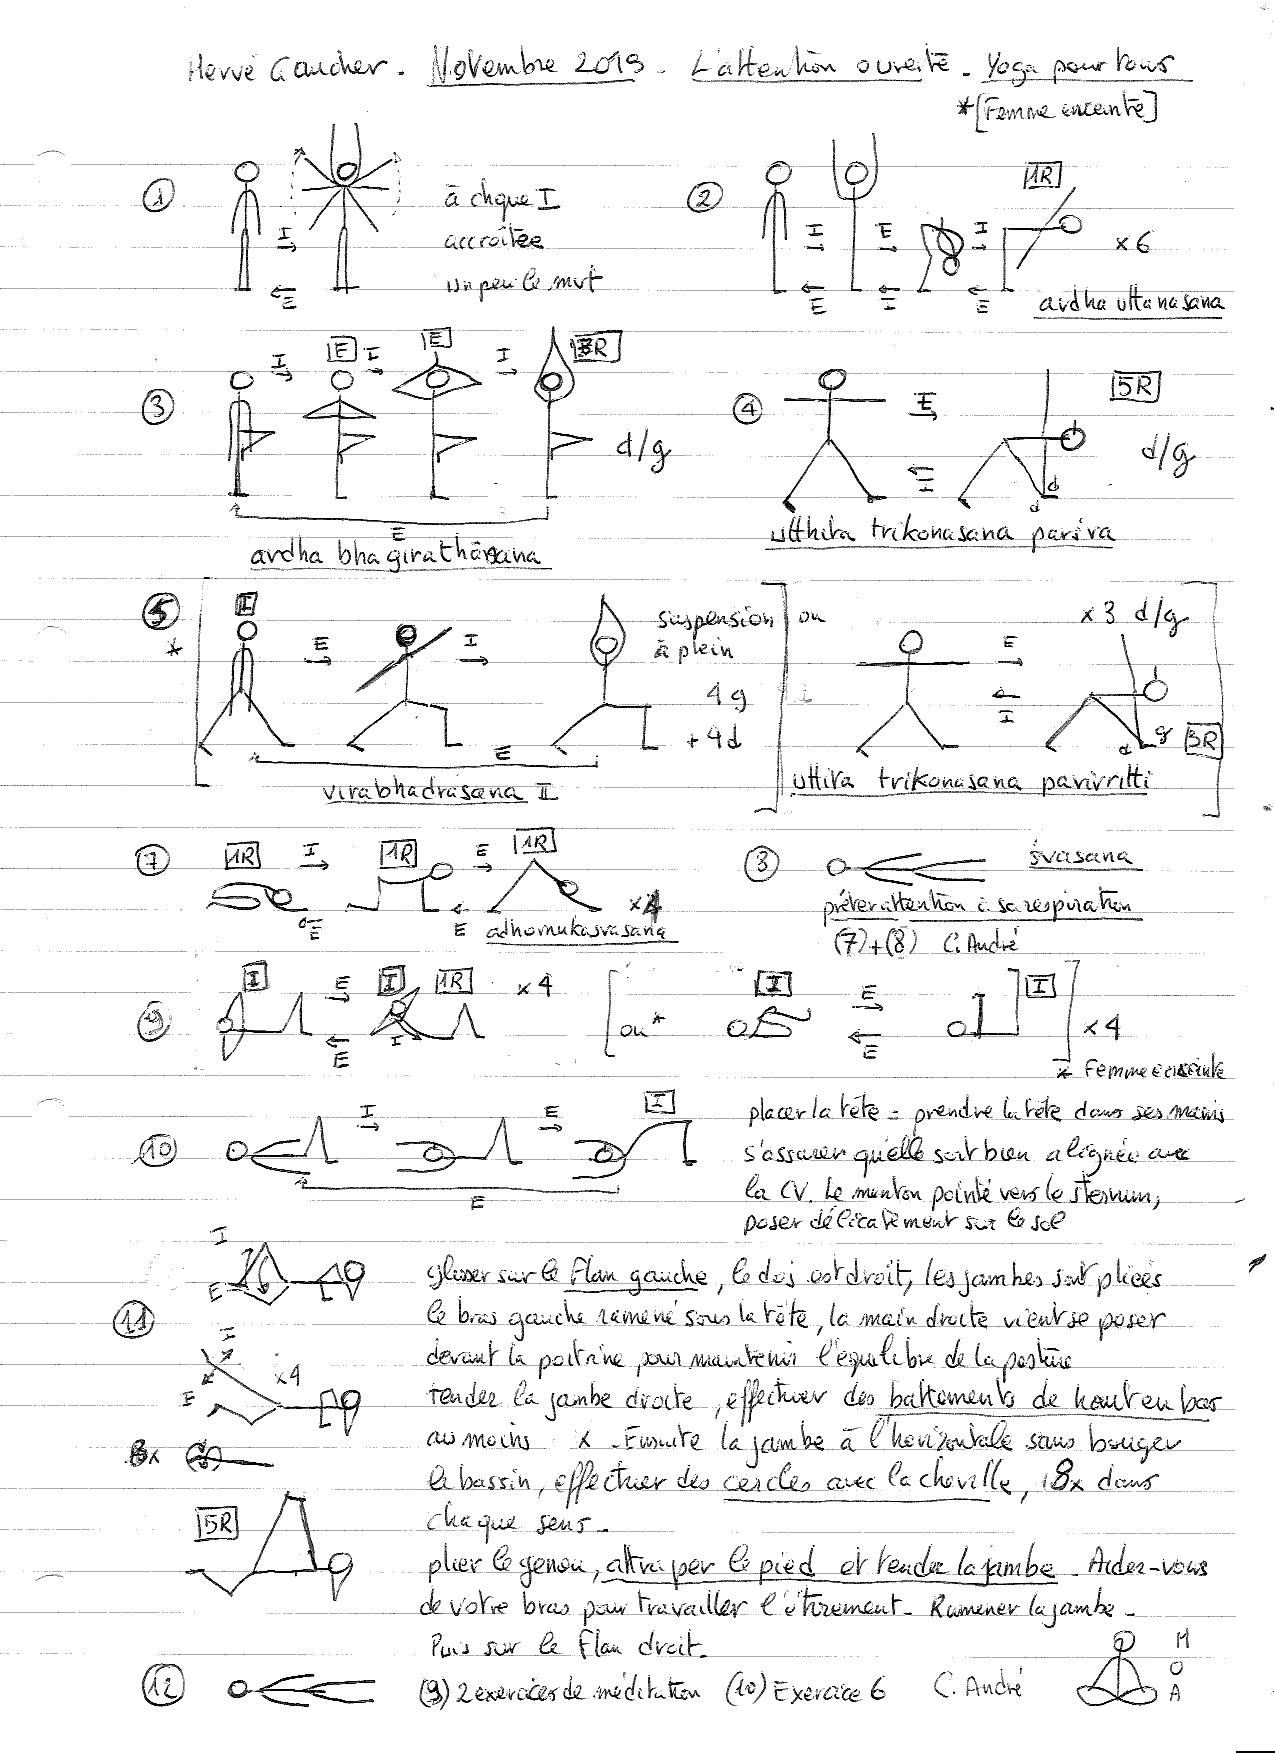 Hervé Gaucher. Novembre 2019. L'attention ouverte. Yoga pour tous
*[Femme enceinte]
① à chque I
accroîtee
un peu le mvt
I
E
② I E I 1R
x 6
E I E
ardha uttanasana
③ I E I E I 3R
d/g
E
ardha bhagirathāsana
④ E 5R
I
d/g
d
utthita trikonasana pariva
⑤ * I E I
suspension
à plein
4g
+ 4d
E
virabhadrasana II
ou
x3 d/g
E
I
d g 3R
uttita trikonasana parivritti
⑦ 1R I 1R E 1R
x4
E E
adhomukasvasana
③ śvasana
prêter attention à sa respiration
(7)+(8) C. André
⑨ I E I 1R x 4
E I
[ou* I E I ] x 4
E
* Femme enceinte
⑩ I E I
E
placer la tête = prendre la tête dans ses mains
s'assurer qu'elle soit bien alignée avec
la CV. Le menton pointé vers le sternum,
poser délicatement sur le sol
⑪ I
E
I
E
x4
8x
5R
glisser sur le flan gauche, le dos est droit, les jambes sont pliées
le bras gauche ramené sous la tête, la main droite vient se poser
devant la poitrine pour maintenir l'équilibre de la posture
tendre la jambe droite, effectuer des battements de haut en bas
au moins x. Ensuite la jambe à l'horizontale sans bouger
le bassin, effectuer des cercles avec la cheville, 8x dans
chaque sens.
plier le genou, attraper le pied et tendre la jambe. Aidez-vous
de votre bras pour travailler l'étirement. Ramener la jambe.
Puis sur le flan droit.
⑫ (9) 2 exercices de méditation (10) Exercice 6 C. André
M
O
A